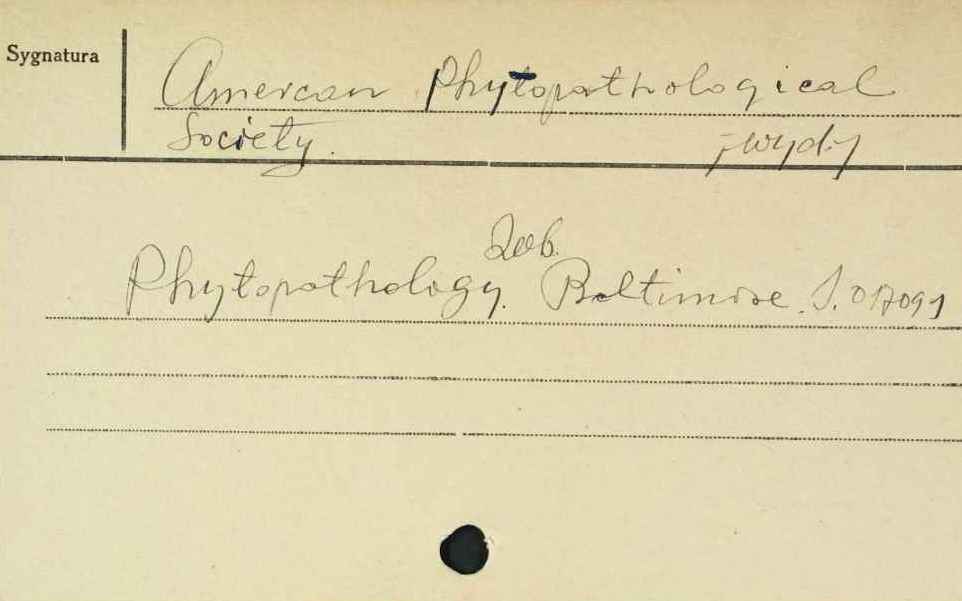 Sygnatura
Amercan Phytopathological
Society. - wyd.
Zob.
Phytopathology. Baltimore. S. 017091